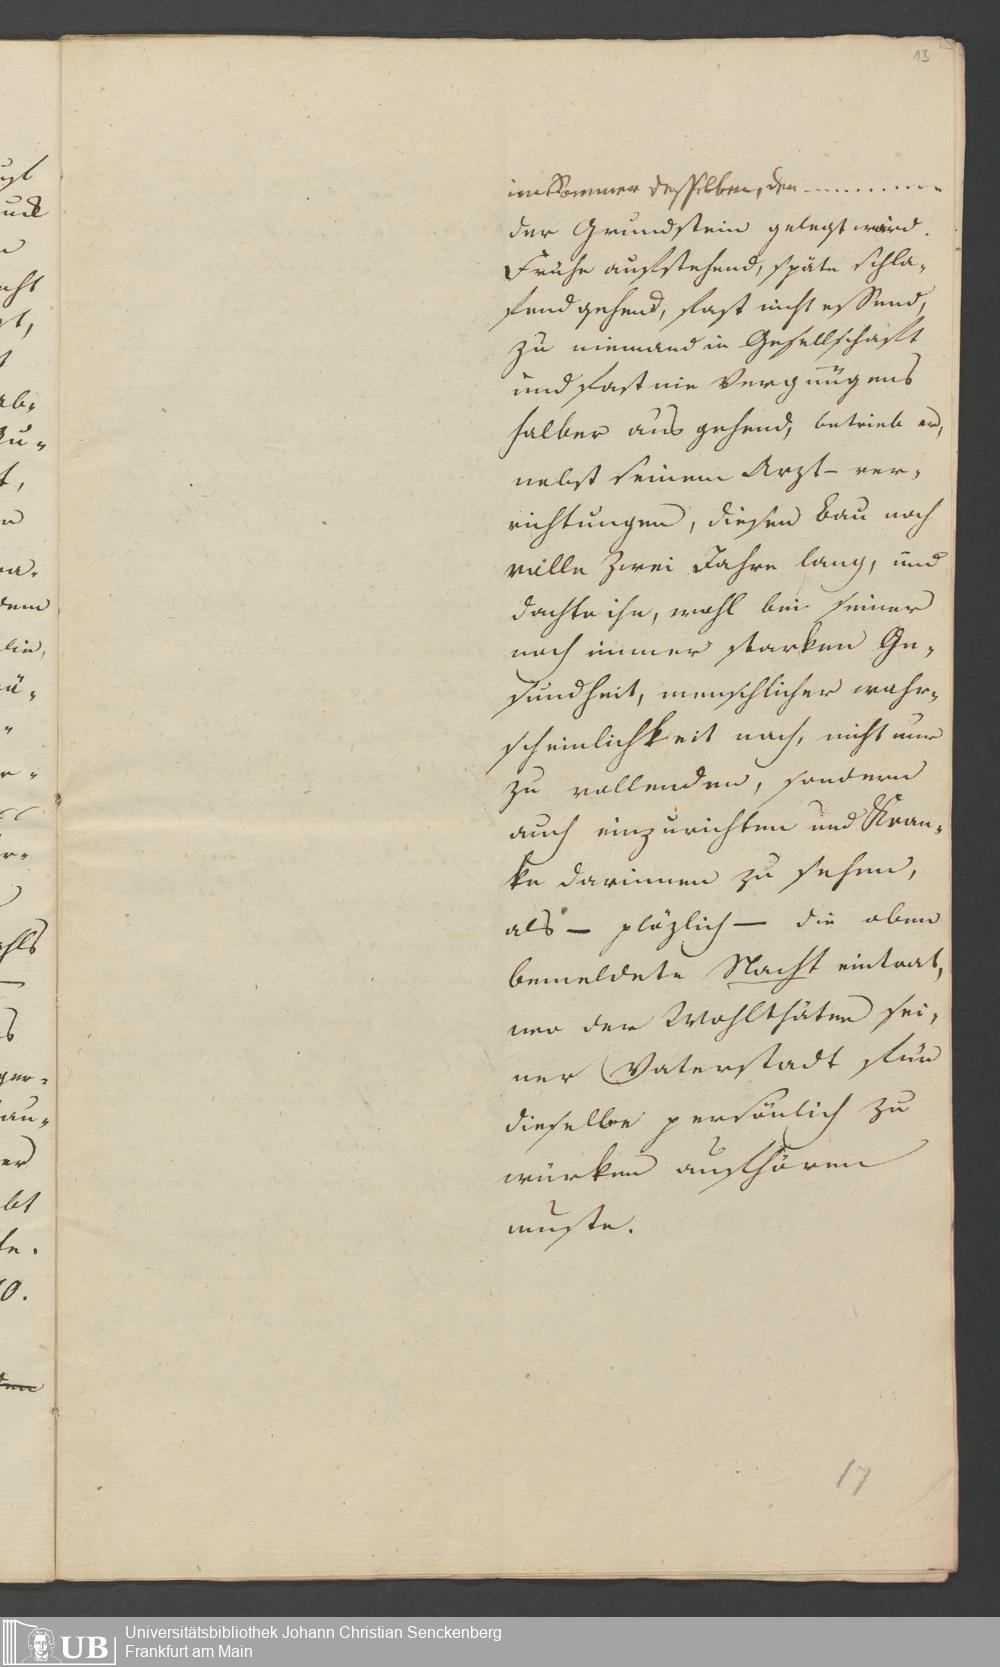 13
im Sommer desselben, den ..........
der Grundstein gelegt wird.
Frühe aufstehend, späte schla-
fend gehend, fast nicht essend,
zu niemand in Gesellschaft
und fast nie Vergnügens
halber aus gehend, betrieb er,
nebst seinem Arzt-ver-
richtungen, diesen Bau noch
volle zwei Jahre lang, und
dachte ihn, wohl bei seiner
noch immer starken Ge-
sundheit, menschlicher wahr-
scheinlichkeit nach, nicht nur
zu vollenden, sondern
auch einzurichten und Kran-
ke darinnen zu sehen,
als — plözlich — die oben
bemeldete Nacht eintrat,
wo der Wohlthäter sei-
ner Vaterstadt für
dieselbe persönlich zu
würken aufhören
muste.
17
UB
Universitätsbibliothek Johann Christian Senckenberg
Frankfurt am Main